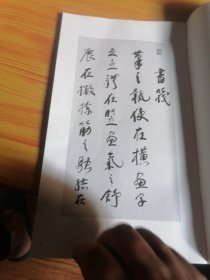 書筏
筆之執使在橫畫字
之立體在竪畫氣之舒
展在撇捺筋之融結在